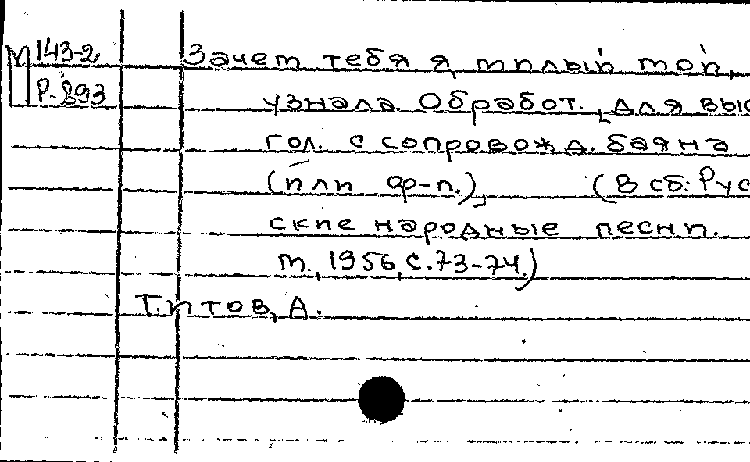 М 143-2 Зачем тебя я, милый мой,
Р-893 узнала. Обработ. для выс
гол. с сопровожд. баяна
(или ф-п.), (В сб: Рус
ские народные песни.
М., 1956, с. 73-74.)
Титов, А.